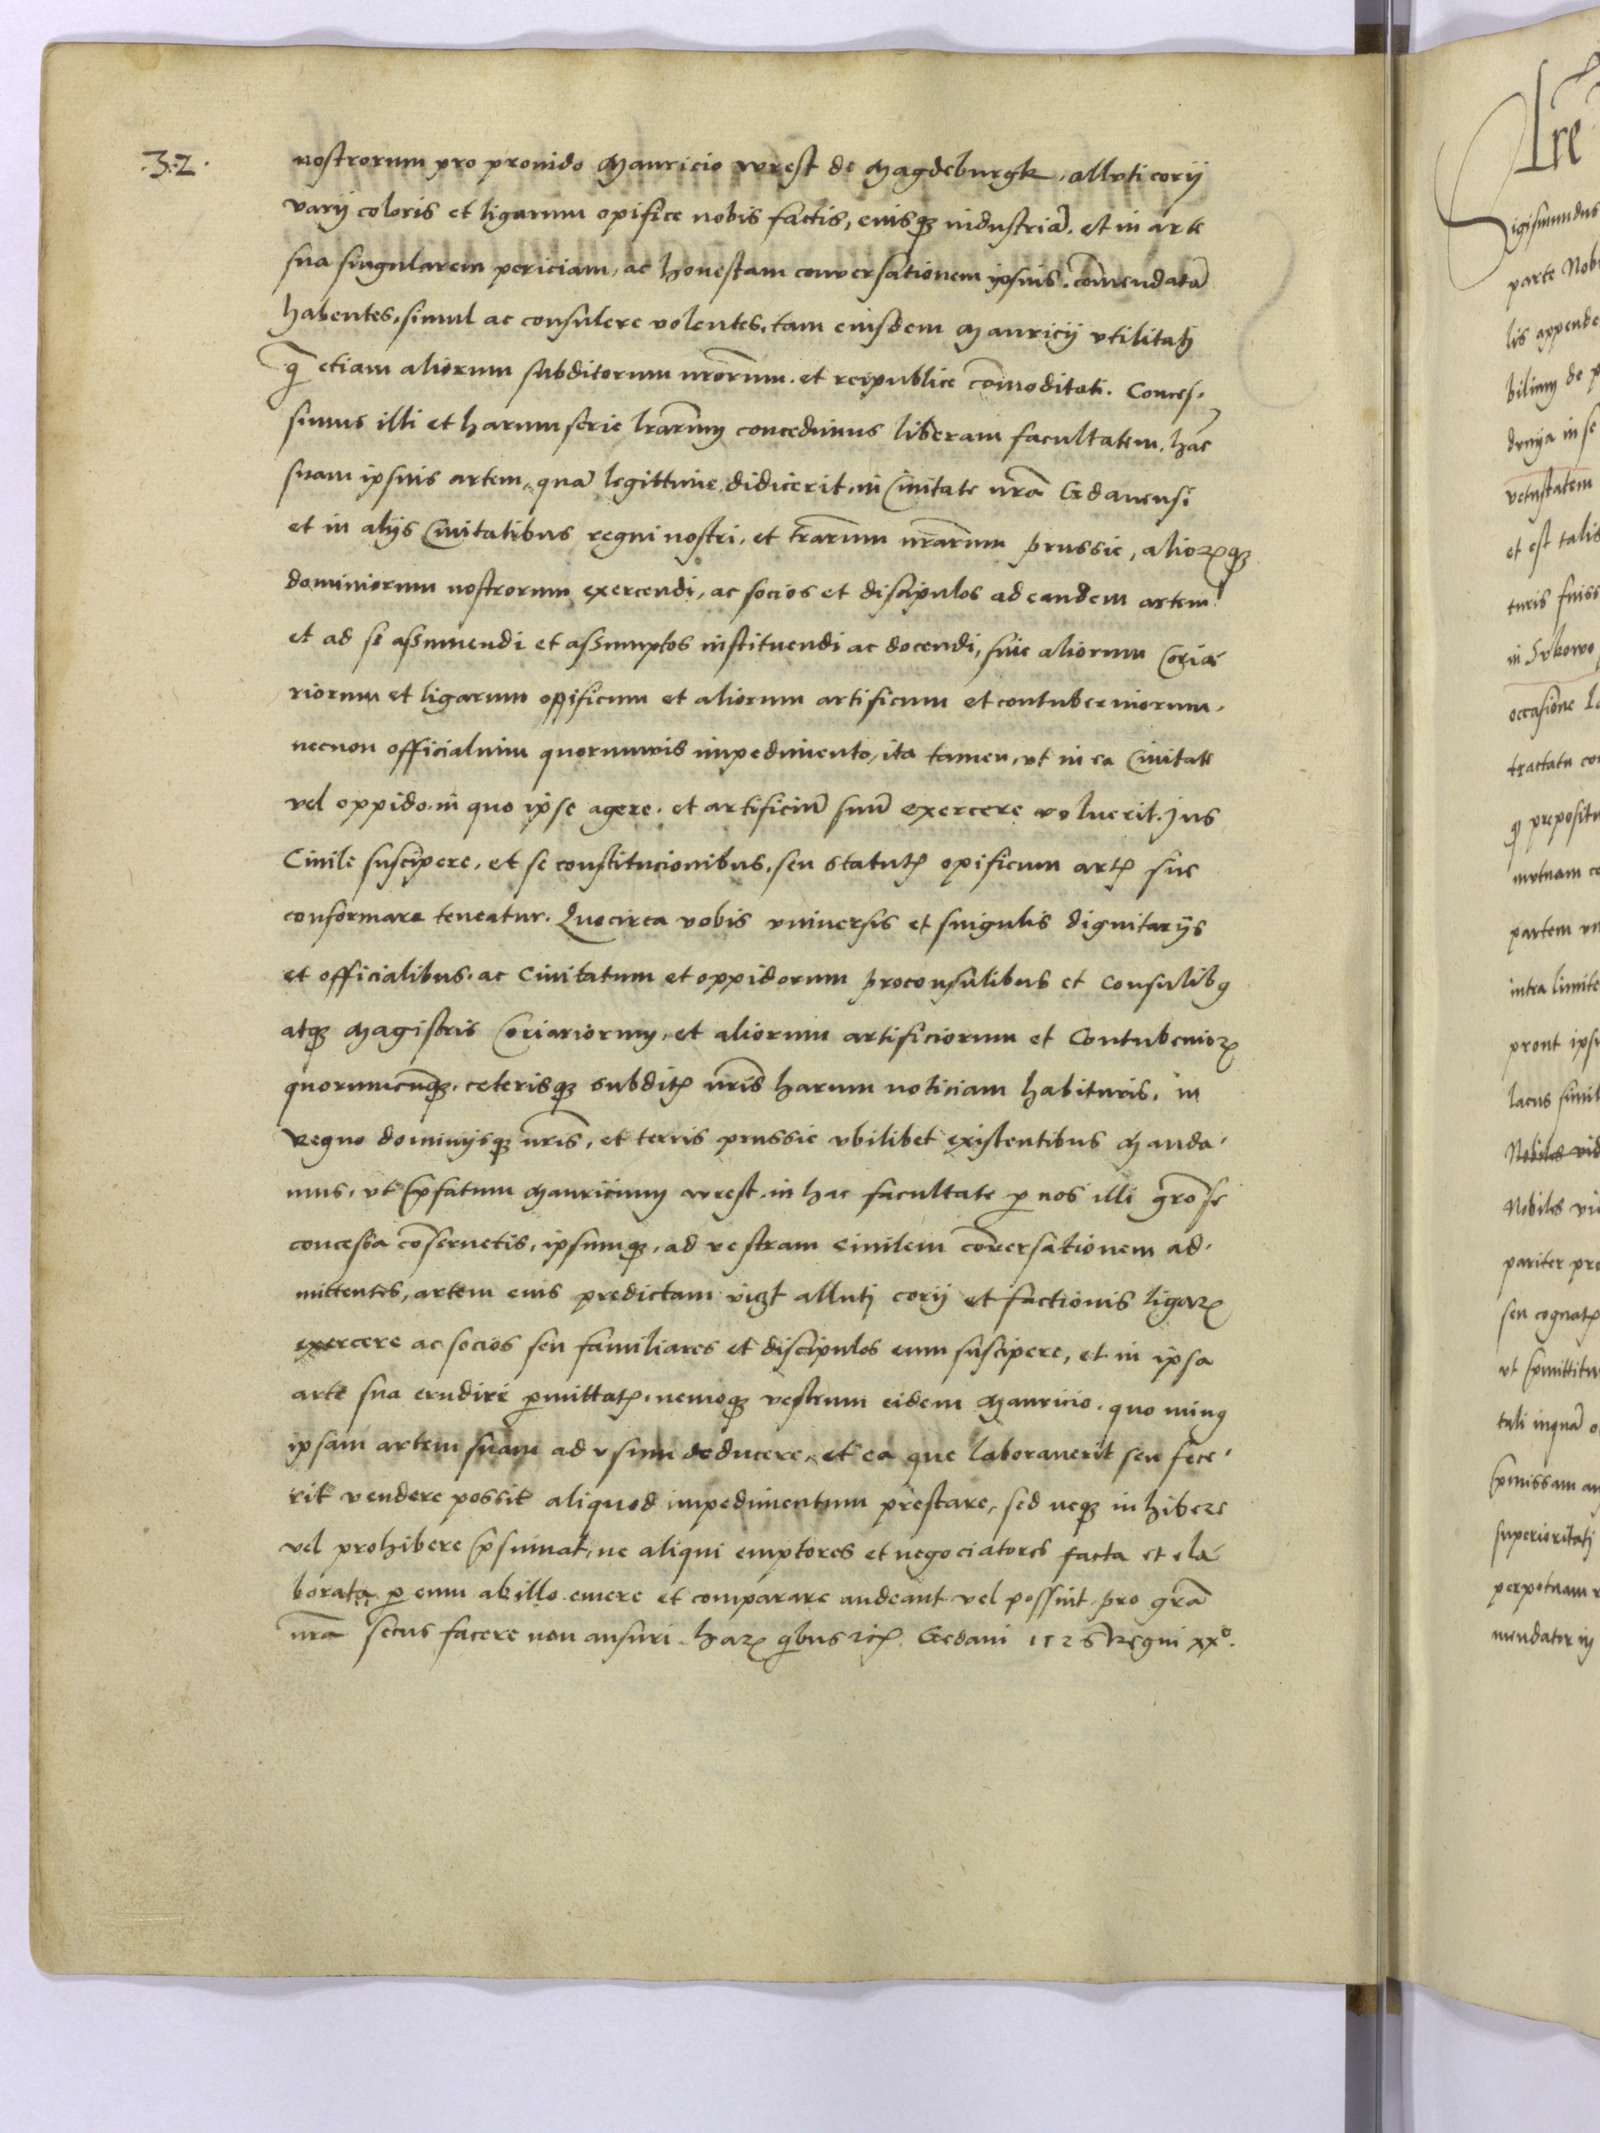 .32.
nostrorum pro prouido Mauricio wrest de Magdeburgk, alluti corij
varij coloris et ligarum opifice nobis factis, eiusqꝫ industriā, et in arte
sua singularem periciam, ac honestam conuersationem ipsius, com̄endatā
habentes, simul ac consulere volentes, tam eiusdem Mauricij vtilitatj
q̄ etiam aliorum subditorum nrōrum, et reipublice com̄oditati. Conces-
simus illi et harum serie lrārum concedimus liberam facultatem, hāc
suam ipsius artem, quā legittime didicerit, in Ciuitate nrā Gedanensi
et in alijs Ciuitatibus regni nostri, et trārum nrārum prussie, alioꝝqꝫ
dominiorum nostrorum exercendi, ac socios et discipulos ad eandem artem
et ad se assumendi et assumptos instituendi ac docendi, siue aliorum Coria-
riorum et ligarum opificum et aliorum artificum et contuberniorum,
necnon officialium quorumuis impedimento, ita tamen, vt in ea Ciuitate
vel oppido, in quo ipse agere, et artificiū suū exercere voluerit, Jus
Ciuile suscipere, et se constitucionibus, seu statutꝭ opificum artꝭ sue
conformare teneatur. Quocirca vobis vniuersis et singulis dignitarijs
et officialibus, ac Ciuitatum et oppidorum proconsulibus et Consulibꝰ
atqꝫ Magistris Coriariorum, et aliorum artificiorum et Contubernioꝝ
quorumcūqꝫ, ceterisqꝫ subditꝭ nrīs harum noticiam habituris, in
Regno dominijsqꝫ nrīs, et terris prussie vbilibet existentibus Manda-
mus, vt p̄fatum Mauricium wrest, in hac facultate ꝑ nos illi grōse
concessa cōseruetis, ipsumqꝫ, ad vestram ciuilem cōuersationem ad-
mittentes, artem eius predictam vizt allutj corij et factionis ligaꝝ
exercere ac socios seu familiares et discipulos eum suscipere, et in ipsa
arte sua erudire ꝑmittatꝭ, nemoqꝫ vestrum eidem Mauricio, quo minꝰ
ipsam artem suam ad vsum deducere, et ea que laborauerit seu fece-
rit vendere possit aliquod impedimentum prestare, sed neqꝫ inhibere
vel prohibere p̄sumat, ne aliqui emptores et negociatores facta et ela-
borata ꝑ eum ab illo emere et comparare audeant vel possint, pro grā
nrā secus facere non ausuri. Haꝝ qibus ꝛcꝭ. Gedani 1526 Regni xxo.
Lre
Sigismundus
parte Nobi
lis appende
de p
in se
vetustatem
et est talis
turis fuiss
occasione
tractatu con
prepositu
mutuam co
partem
intra limite
prout ipsu
lacus simil
Nobiles vid
Nobiles vi
pariter pre
seu cognatꝭ
vt p̄mittitu
tali inquā o
p̄missam au
superioritatj
perpetuam